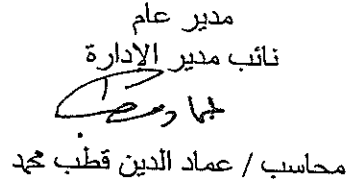 مدير عام
نائب مدير الإدارة
محاسب / عماد الدين قطب محمد